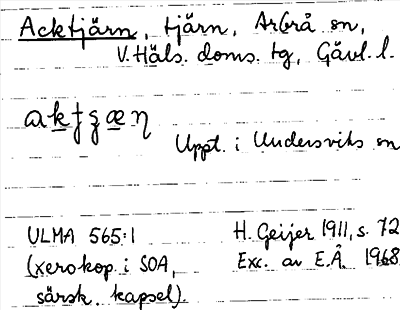 Acktjärn, tjärn, Arbrå sn,
V. Häls. doms. tg, Gävl. l.
Uppt. i Undersviks sn
ULMA 565:1
H. Geijer 1911, s. 72
(xerokop. i SOA,
Exc. av E.Å. 1968
särsk. kapsel).